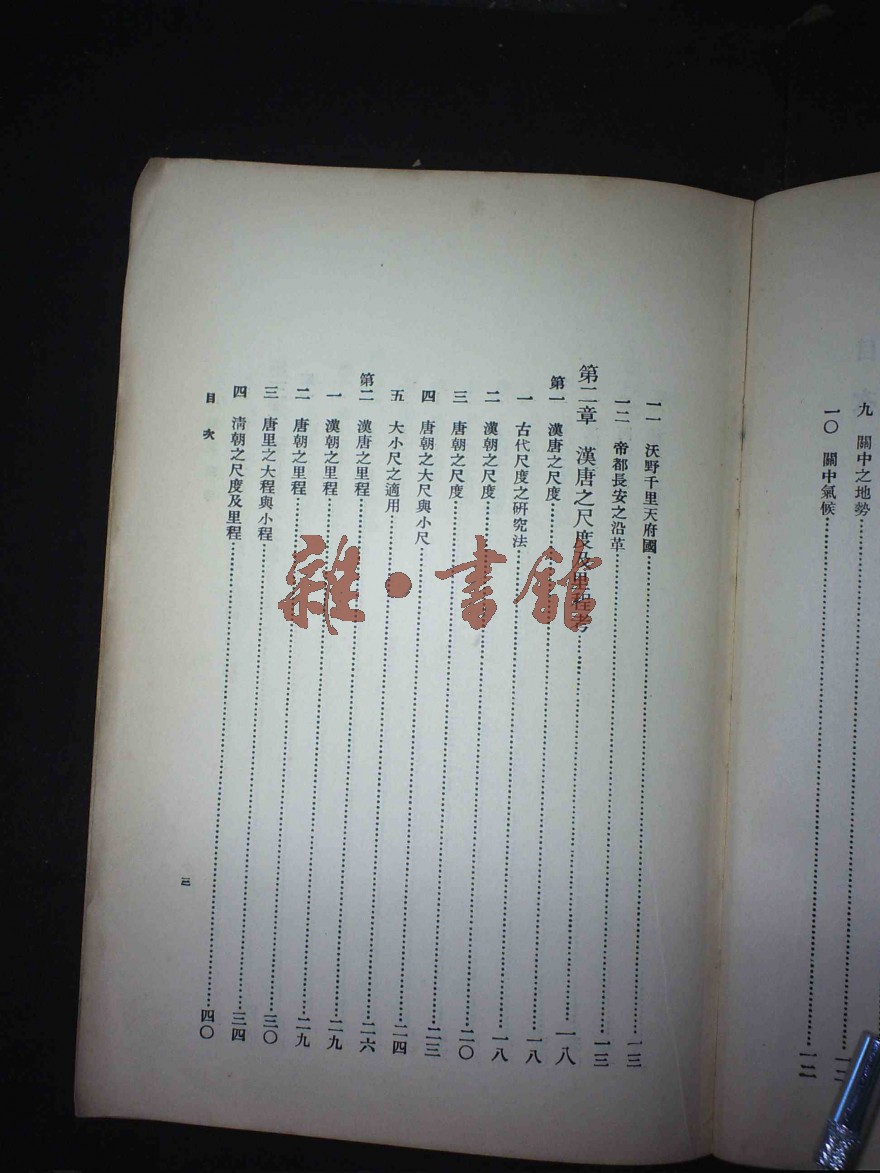 九 關中之地勢……一二
一〇 關中氣候……一二
一一 沃野千里天府國……一三
一二 帝都長安之沿革……一三
第二章 漢唐之尺度及里程考……一八
第一 漢唐之尺度……一八
一 古代尺度之研究法……一八
二 漢朝之尺度……二〇
三 唐朝之尺度……二三
四 唐朝之大尺與小尺……二四
五 大小尺之適用……二六
第二 漢唐之里程……二九
一 漢朝之里程……二九
二 唐朝之里程……三〇
三 唐里之大程與小程……三四
四 清朝之尺度及里程……四〇
目次
三
雜·書館